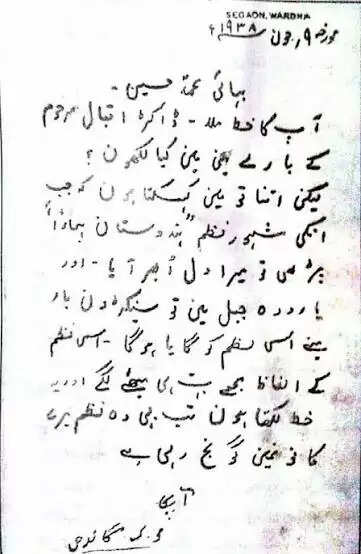 SEGAON, WARDHA
مورخہ ۹ جون ۱۹۳۸ء
بھائی محمد حسین -
آپ کا خط ملا - ڈاکٹر اقبال مرحوم
کے بارے میں میں کیا لکھوں؟
لیکن اتنا تو میں کہہ سکتا ہوں کہ جب
انکی مشہور نظم "ہندوستان ہمارا"
پڑھی تو میرا دل ابھر آیا - اور
یارودہ جیل میں تو سینکڑوں بار
مینے اس نظم کو گایا ہوگا - اس نظم
کے الفاظ مجھے بہت ہی میٹھے لگے اور یہ
خط لکھتا ہوں تب بھی وہ نظم میرے
کانوں میں گونج رہی ہے
آپکا
م ک گاندھی